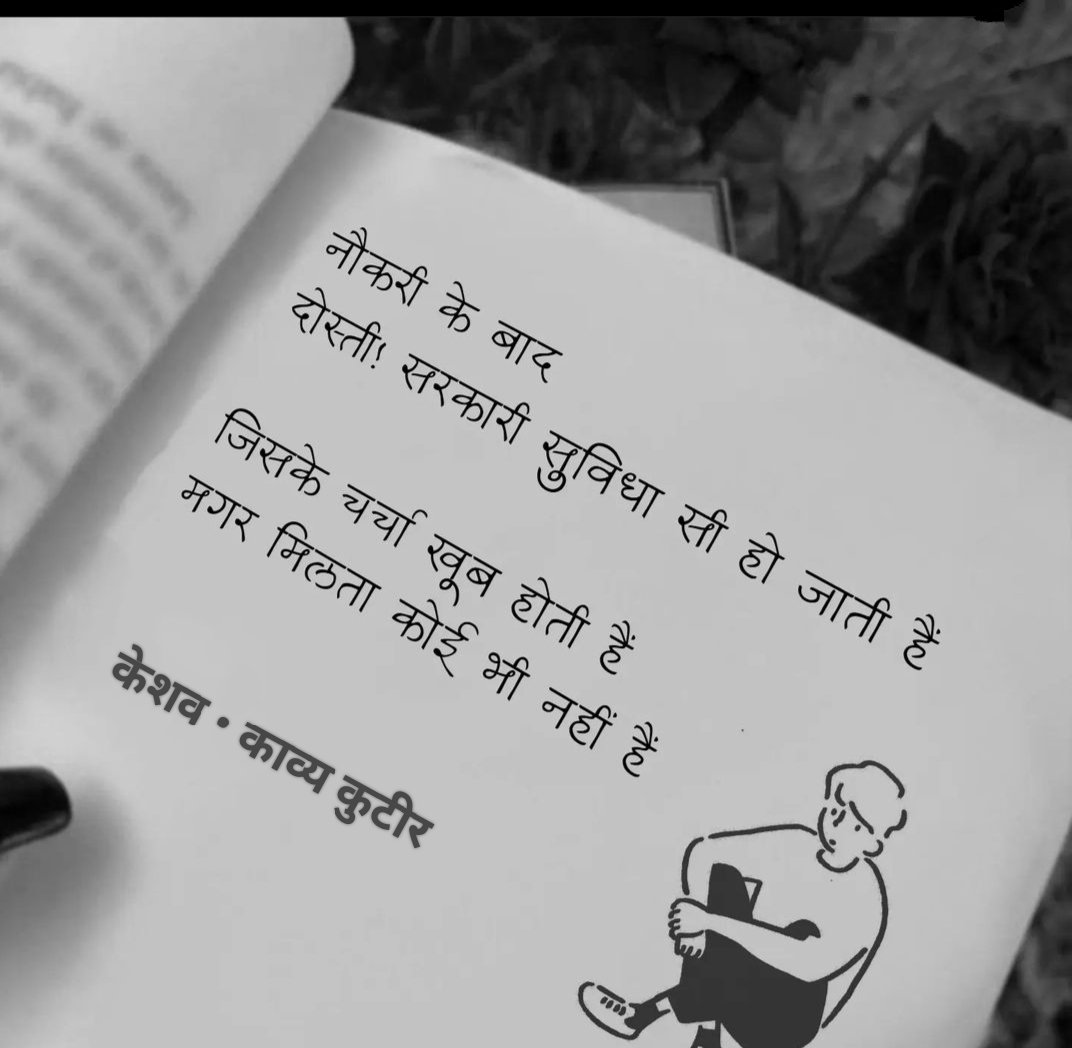 नौकरी के बाद
दोस्ती! सरकारी सुविधा सी हो जाती हैं
जिसके चर्चा खूब होती हैं
मगर मिलता कोई भी नहीं हैं
केशव • काव्य कुटीर